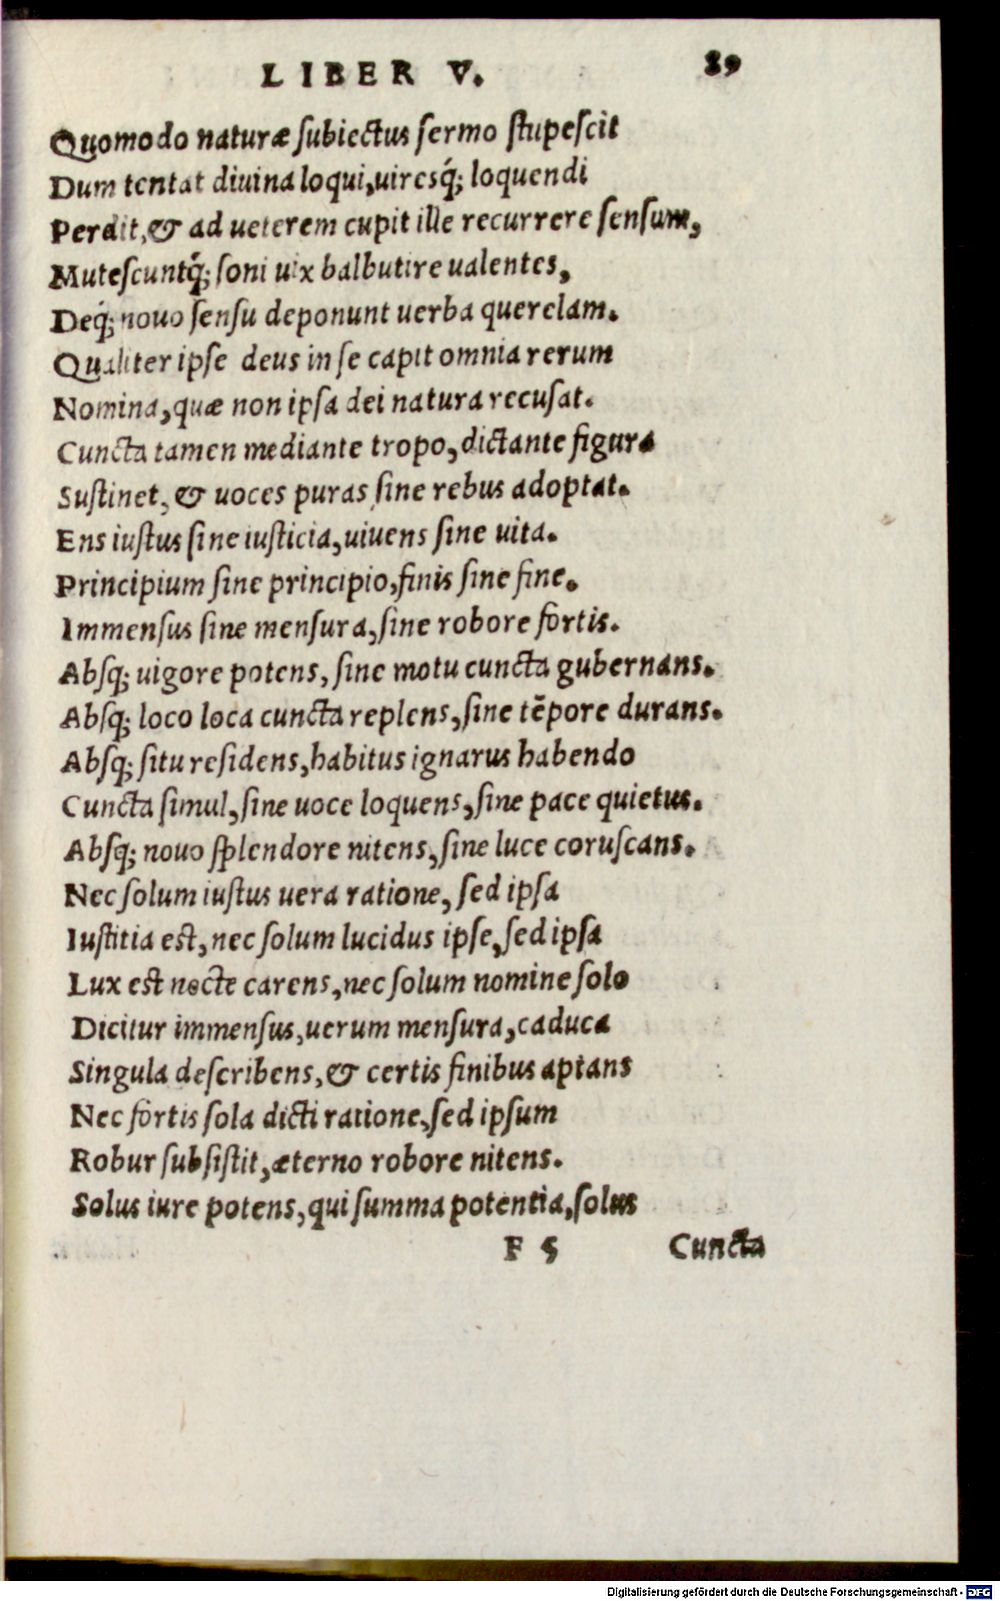 LIBER V. 89
Quomodo naturæ ſubiectus ſermo ſtupeſcit
Dum tentat diuina loqui, uiresq́; loquendi
Perdit, & ad ueterem cupit ille recurrere ſenſum,
Muteſcuntq́; ſoni uix balbutire ualentes,
Deq́; nouo ſenſu deponunt uerba querelam.
Qualiter ipſe deus in ſe capit omnia rerum
Nomina, quæ non ipſa dei natura recuſat.
Cuncta tamen mediante tropo, dictante figura
Suſtinet, & uoces puras ſine rebus adoptat.
Ens iuſtus ſine iuſticia, uiuens ſine uita.
Principium ſine principio, finis ſine fine.
Immenſus ſine menſura, ſine robore fortis.
Abſq; uigore potens, ſine motu cuncta gubernans.
Abſq; loco loca cuncta replens, ſine tēpore durans.
Abſq; ſitu reſidens, habitus ignarus habendo
Cuncta ſimul, ſine uoce loquens, ſine pace quietus.
Abſq; nouo ſplendore nitens, ſine luce coruſcans.
Nec ſolum iuſtus uera ratione, ſed ipſa
Iuſtitia eſt, nec ſolum lucidus ipſe, ſed ipſa
Lux eſt nocte carens, nec ſolum nomine ſolo
Dicitur immenſus, uerum menſura, caduca
Singula deſcribens, & certis finibus aptans
Nec fortis ſola dicti ratione, ſed ipſum
Robur ſubſiſtit, æterno robore nitens.
Solus iure potens, qui ſumma potentia, ſolus
F 5 Cuncta
Digitalisierung gefördert durch die Deutsche Forschungsgemeinschaft - DFG